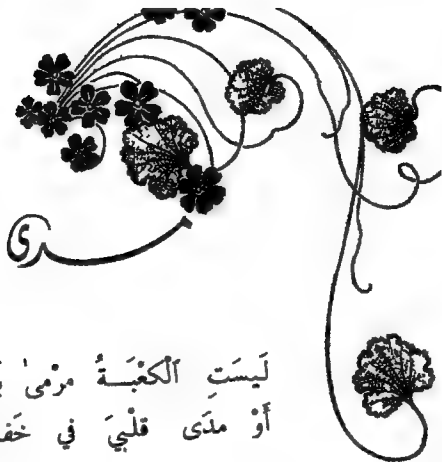 لَيسَتِ ٱلْكَعْبَـةُ مرْمىٰ
أَوْ مدَى قلْبِيَ في